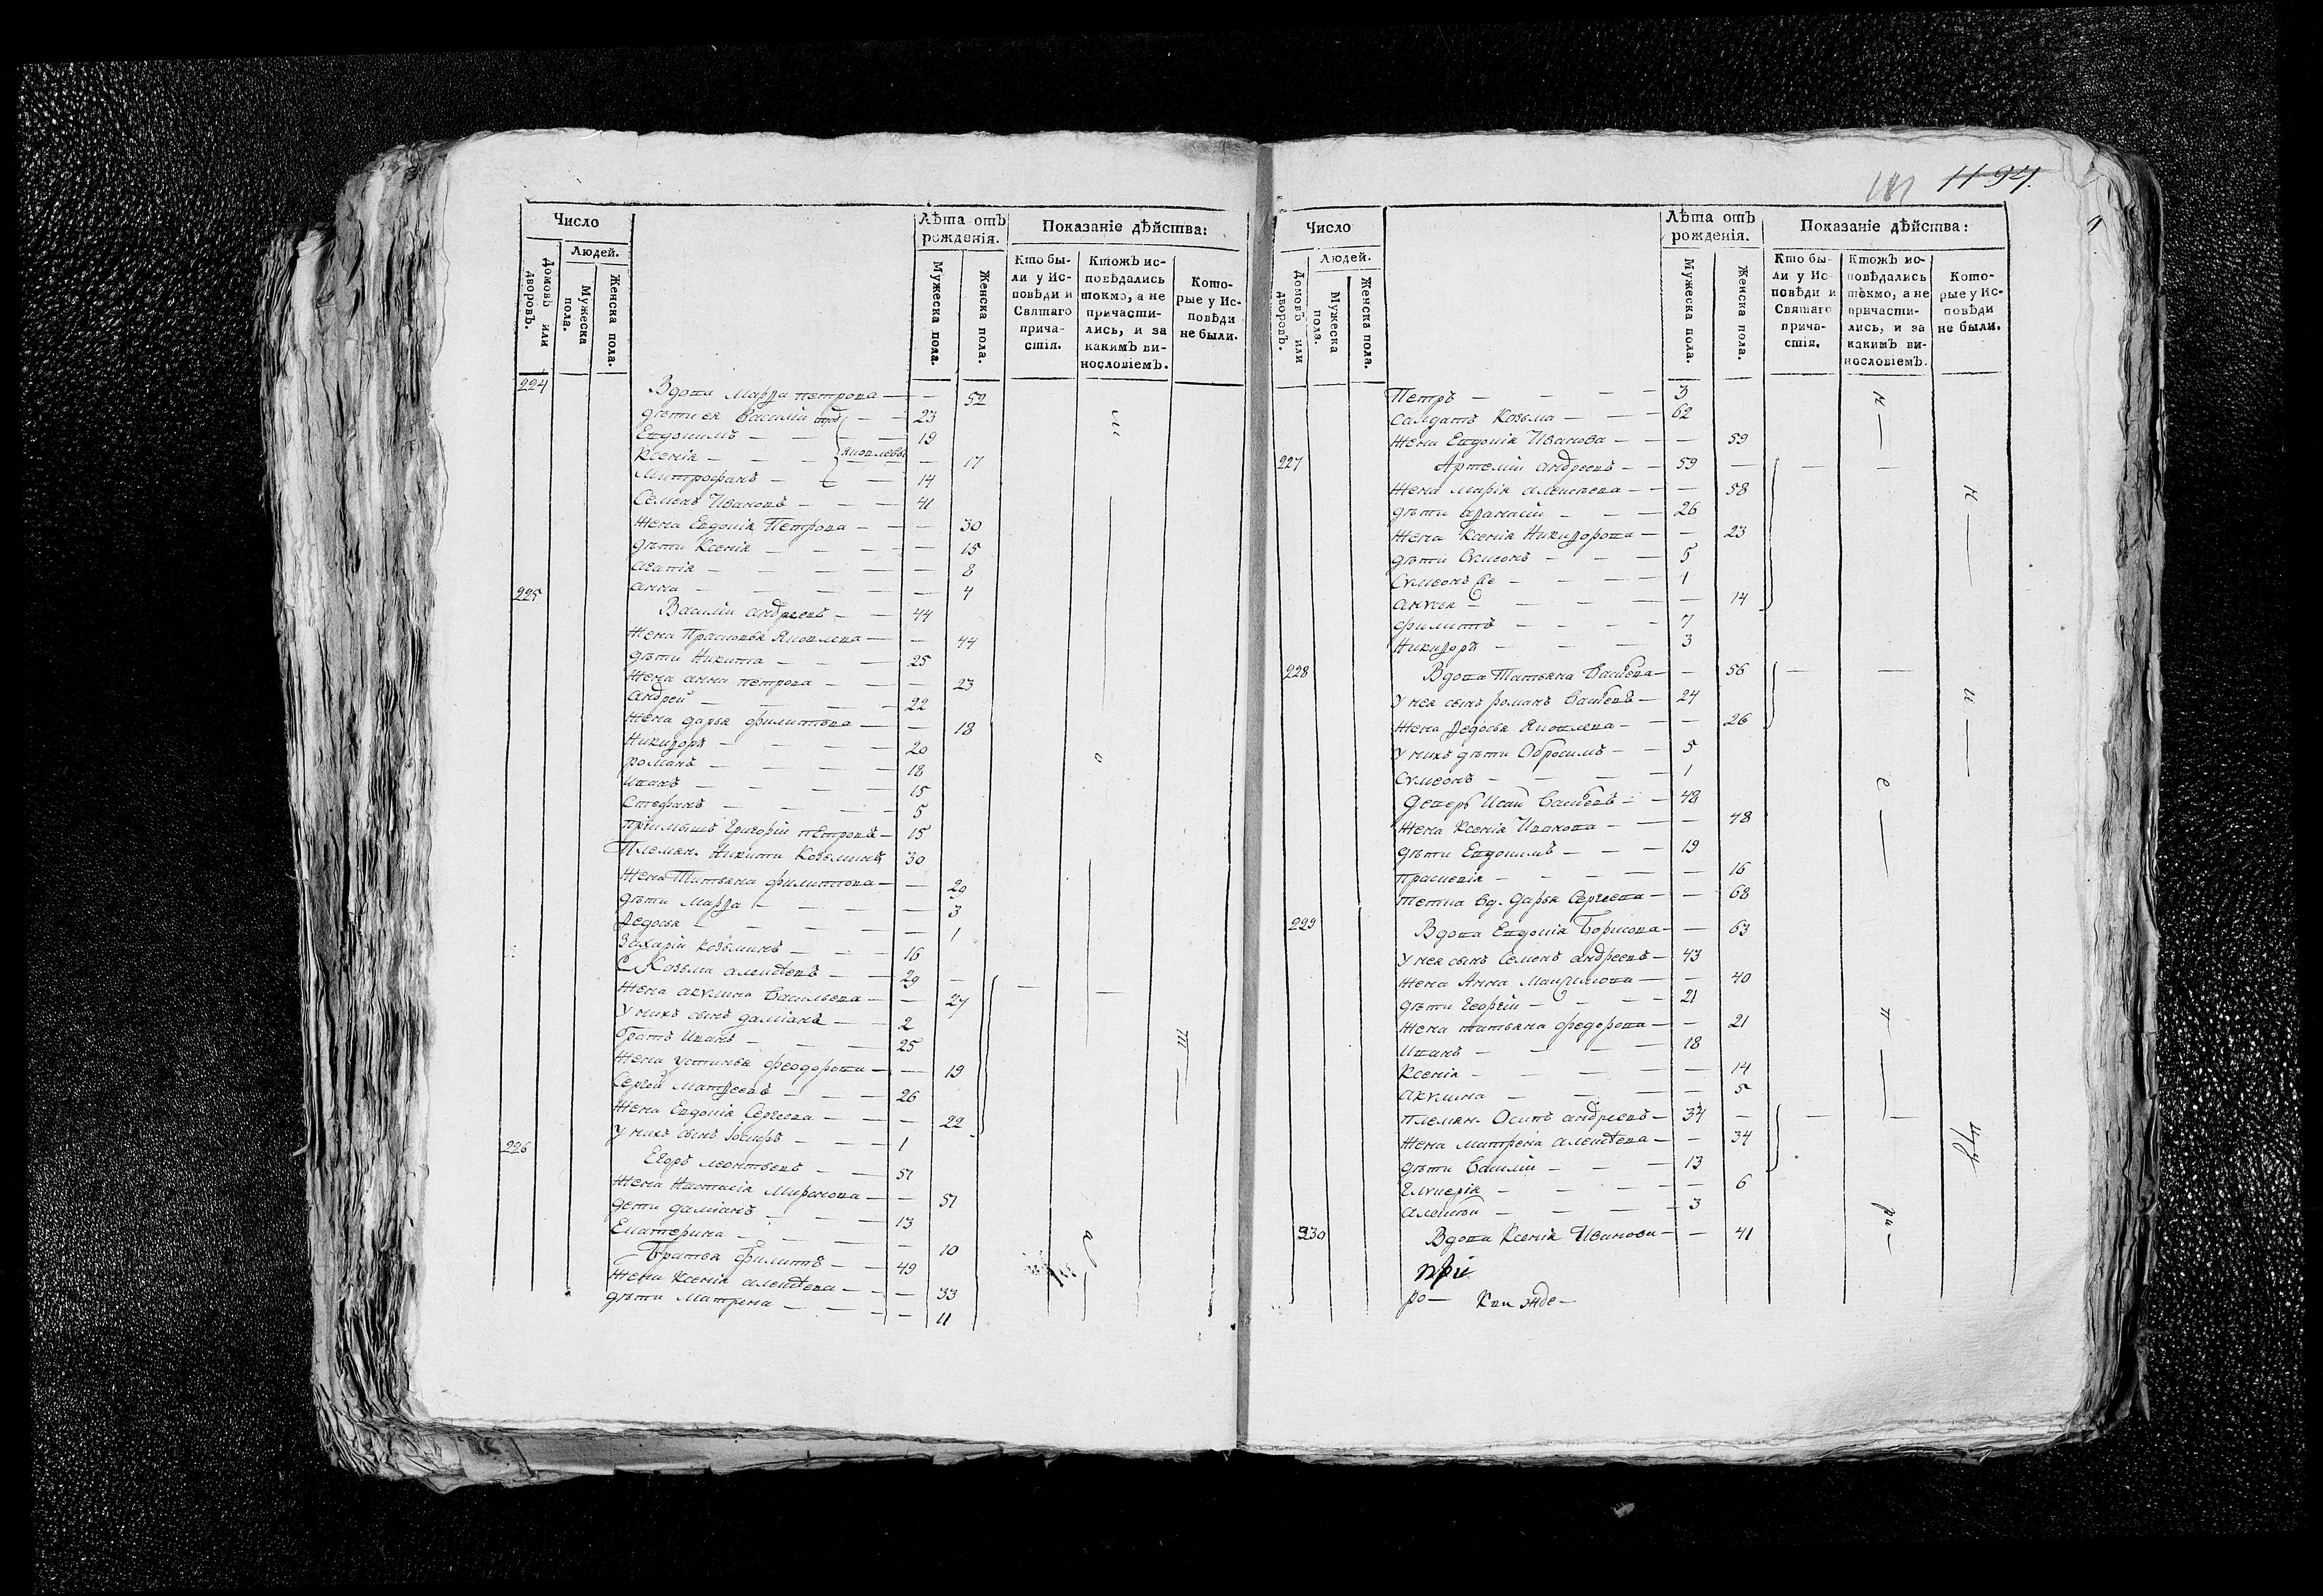 Число
Людей.
Домовъ или дворовъ.
Мужеска пола.
Женска пола.
Лѣта отъ рожденія.
Мужеска пола.
Женска пола.
Показаніе дѣйства:
Кто были у Исповѣди и Святаго причастія.
Ктожъ исповѣдались токмо, а не причастились, и за какимъ винословіемъ.
Которые у Исповѣди не были.
224 Вдова Марѳа петрова — — 52
дѣти ея Василій — — 23
Евдокимъ — — — 19
Ксенія — — Яковлевы — 17
Митрофанъ — — 14
Семенъ Ивановъ — — — 41
Жена Евдокія Петрова — — — 30
дѣти Ксенія — — — — — 15
агапія — — — — — 8
анна — — — — — 4
225 Василій андреевъ — — 44
Жена Прасковья Яковлева — — 44
дѣти Никита — — — 25
Жена анна петрова — — — 23
андрей — — — — 22
Жена дарья филиппова — — 18
Никифоръ — — — — 20
романъ — — — — 18
Иванъ — — — — 15
Стефанъ — — — — 5
пріимышъ Григорій петровъ — 15
Племян. Никита Козьминъ 30
Жена Татьяна филиппова — — 29
дѣти Марѳа — — — — 3
Ѳедосья — — — — — 1
Захарій козьминъ — — — 16
Козьма алексѣевъ — — 29 —
Жена акулина Васильева — — 27
У нихъ сынъ даміанъ — — 2
братъ Иванъ — — — 25
Жена устинья феодорова — — 19
Сергей Матвеевъ — — — 26
Жена Евдокія Сергеева — — — 22
У нихъ сынъ Іосифъ — — — 1
226 Егоръ леонтьевъ — — 51
Жена Настасія Миронова — — 51
дети даміанъ — — — 13
Екатерина — — — — 10
Братья Филиппъ — — 49
Жена Ксенія алексѣева — — — 33
дѣти Матрена — — — — 11
1194.
Число
Людей.
Домовъ или дворовъ.
Мужеска пола.
Женска пола.
Лѣта отъ рожденія.
Мужеска пола.
Женска пола.
Показаніе дѣйства:
Кто были у Исповѣди и Святаго причастія.
Ктожъ исповѣдались токмо, а не причастились, и за какимъ винословіемъ.
Которые у Исповѣди не были.
Петръ — — — — 3
Салдатъ Козьма — — — 62
Жена Евдокія Иванова — — — 59
227 Артемій андреевъ — — 59 —
Жена марія алексѣева — — — 58
дѣти афанасій — — — 26
Жена Ксенія Никифорова — — 23
дѣти Сѵмеонъ — — — 5
Сѵмеонъ — — — — 1
— — — — — 14
филиппъ — — — — 7
Никифоръ — — — — 3
228 Вдова Татьяна — — 56
У нея сынъ романъ — 24
Жена Ѳедосья Яковлева — — — 26
У нихъ дѣти Обросимъ — — 5
Сѵмеонъ — — — — 1
— 48
Жена Ксенія Иванова — — — 48
дѣти Евдокимъ — — — 19
— — — — — 16
тетка вд. дарья Сергеева — — 68
229 Вдова Евдокія борисова — — 63
У нея сынъ Семенъ андреевъ — 43
Жена Анна — — 40
дѣти Георгій — — — 21
Жена татьяна федорова — — 21
Иванъ — — — — 18
Ксенія — — — — — 14
акулина — — — — — 5
племян. Осипъ андреевъ — 34 —
Жена матрена алексѣева — — 34
дѣти Василій — — — 13
Гликерія — — — — — 6
алексѣй — — — — 3
230 Вдова Ксенія Иванова — — 41